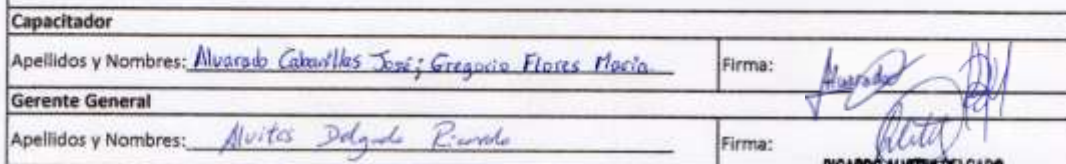 Capacitador
Apellidos y Nombres: Alvarado Cabanillas José; Gregorio Flores María Firma: Alvarado
Gerente General
Apellidos y Nombres: Alvites Delgado Ricardo Firma:
RICARDO ALVITES DELGADO